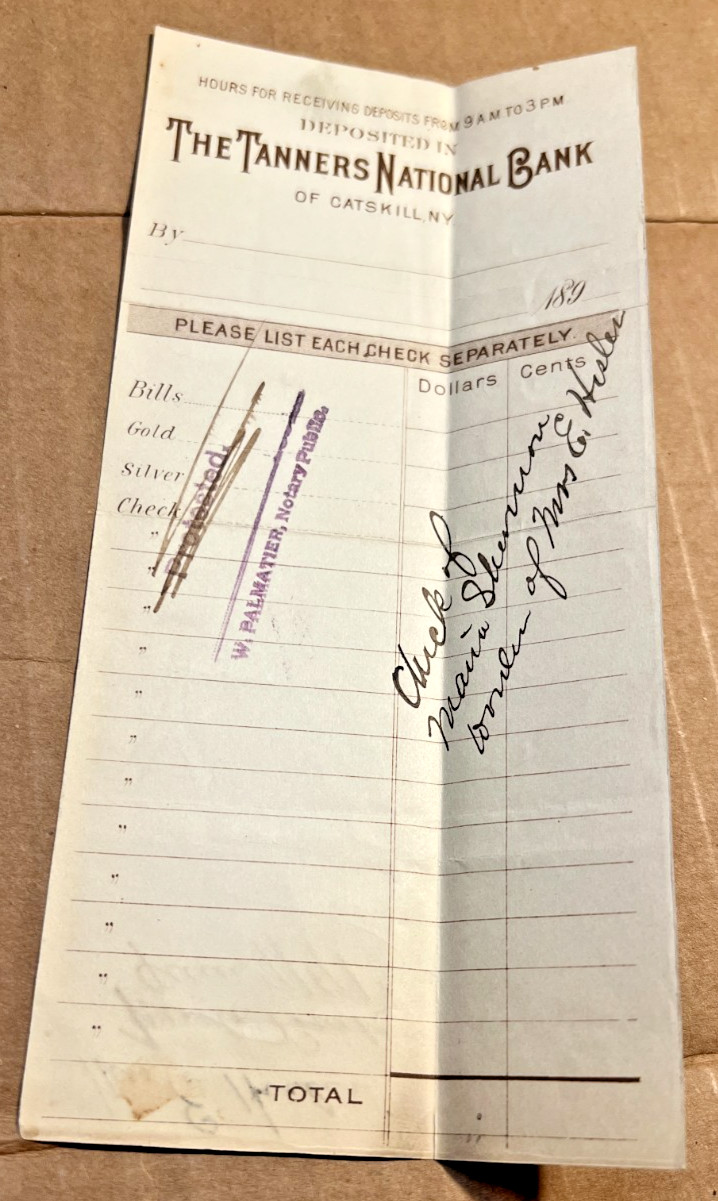 HOURS FOR RECEIVING DEPOSITS FROM 9 AM TO 3 PM
DEPOSITED IN
THE TANNERS NATIONAL BANK
OF CATSKILL, NY
By
189
PLEASE LIST EACH CHECK SEPARATELY.
Dollars Cents
Bills
Gold
Silver
Check
"
"
"
"
"
"
"
"
"
"
"
Protested
W. PALMATIER, Notary Public.
Check of
Maria
of Mrs E.
TOTAL